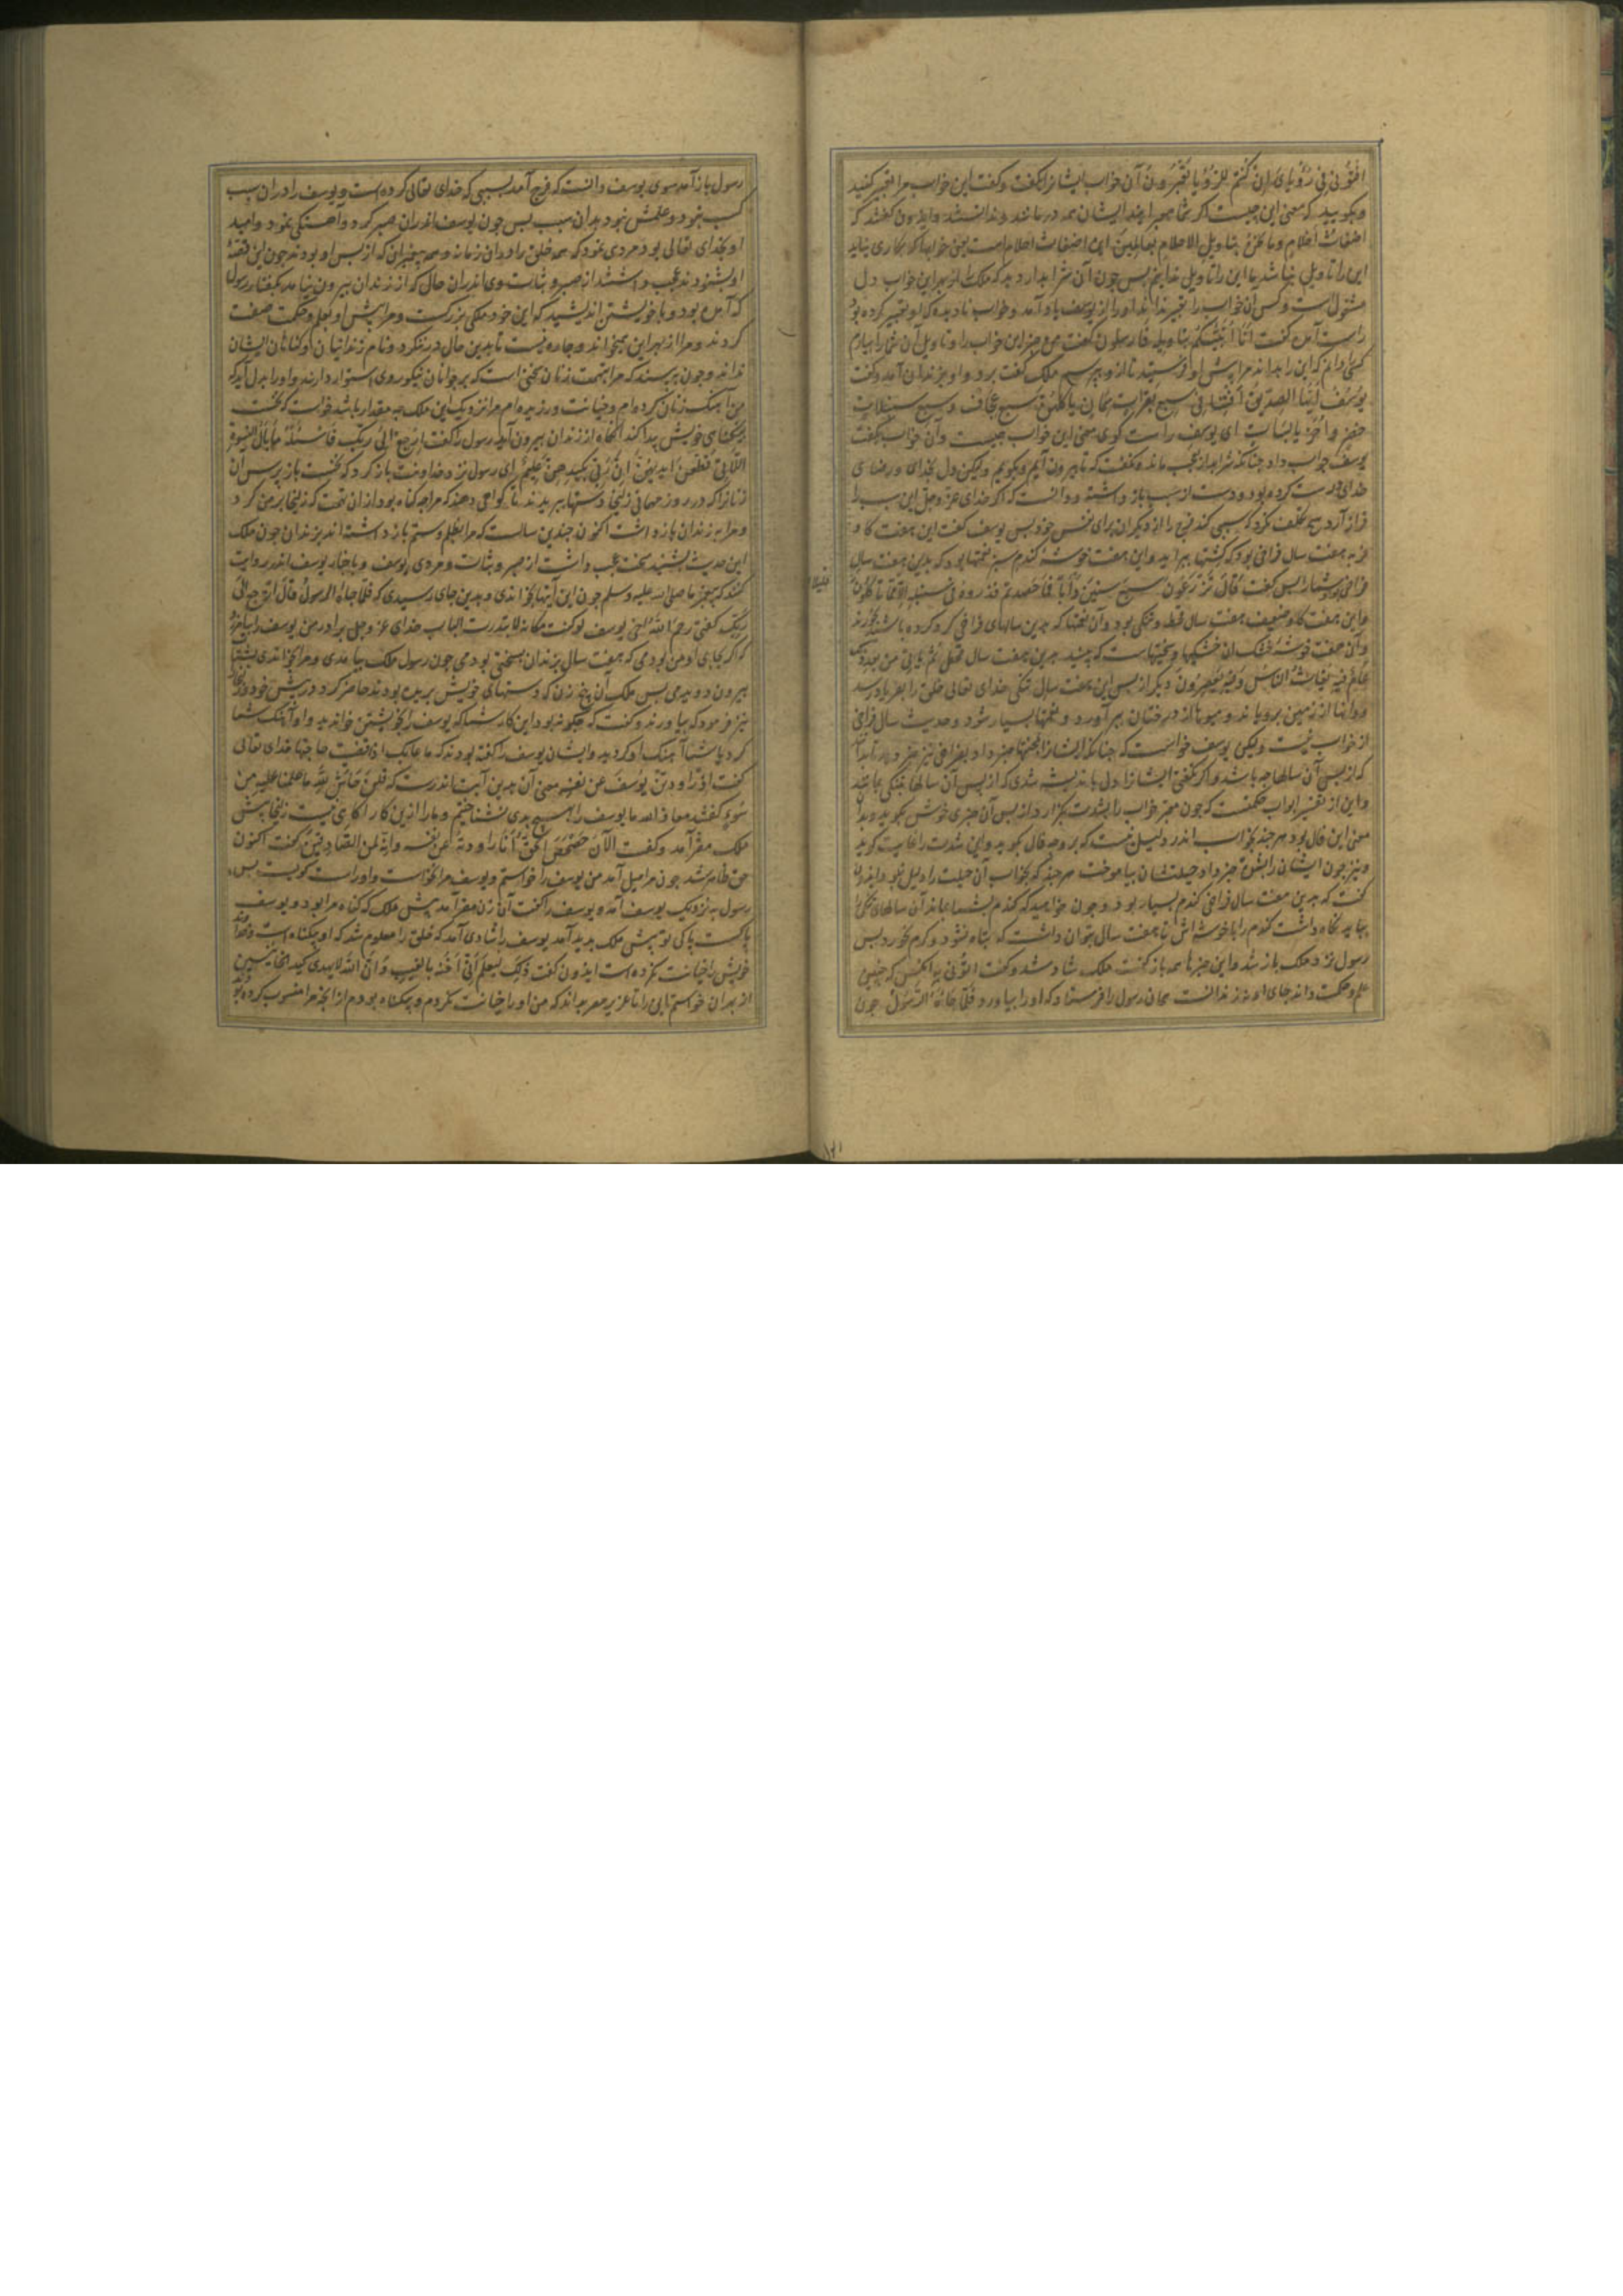 افتونی فی رؤیای ان کنتم للرؤیا تعبرون آن خواب ایشانرا بکفت و کفت این خواب مرا تعبیر کنید
و بکویید که معنی این چیست اکر شما معبرانید ایشان همه درماندند و ندانستند وایدون کفتند که
اضغاث احلام و ما نحن بتاویل الاحلام بعالمین این اضغاث احلام است یعنی خوابها که بکاری نیاید
این را تاویلی نباشد ما این را تاویلی ندانیم پس چون آن شرابدار دید که ملک را از بهر این خواب دل
مشغول است و کس آن خواب را تعبیر نداند او را از یوسف یاد آمد و خواب نادیده که او تعبیر کرده بود
راست آمد کفت انا انبئکم بتاویله فارسلون کفت من خبر این خواب را و تاویل آن شما را بیارم
کسی دانم که این را بداند مرا پیش او فرستید تا از و بپرسم ملک کفت برو و او بزندان آمد و کفت
یوسف ایها الصدیق افتنا فی سبع بقرات سمان یاکلهن سبع عجاف و سبع سنبلات
خضر و اخر یابسات ای یوسف راست کوی معنی این خواب چیست و آن خواب بکفت
یوسف جواب داد چنانکه شرابدار عجب ماند و نکفت که تا بیرون آیم و بکویم ولیکن دل بخدای و رضای
خدای درست کرده بود و دست از سبب باز داشته و دانست که اکر خدای عز و جل این سبب را
فراز آرد هیچ تکلف نکرد که سببی کند فرج را از دیکران برای نفس خود پس یوسف کفت این هفت کاو
فربه هفت سال فراخی بود که کشتها برآید و این هفت خوشه کندم سبز نعمتها بود که بدین هفت سال
فراخی پس کفت قال تزرعون سبع سنین دابا فما حصدتم فذروه فی سنبله الا قلیلا مما تاکلون
و این هفت کاو ضعیف هفت سال قحط و تنکی بود و آن نعمتها که بدین سالهای فراخی کرد کرده باشند بخورند
و آن هفت خوشه خشک آن خشکیها و سختیهاست که بینید بدین هفت سال قحط ثم یاتی من بعد ذلک
عام فیه یغاث الناس و فیه یعصرون دیکر از پس این هفت سال تنکی خدای تعالی خلق را بفریاد رسد
و دانها از زمین برویاند و میوها از درختان برآورد و نعمتها بسیار شود و حدیث سال فراخی
از خواب نیست ولیکن یوسف خواست که چنانکه ایشانرا بسختیها خبر داد بفراخی نیز خبر دهد تا بدانند
که از پس آن سالها چه باشد و اکر نکفتی ایشانرا دل باندیشه شدی که از پس آن سالها بتنکی بمانند
و این از تفسیر ابواب حکمتست که چون معبر خواب را بشدت بکزارد از پس آن چیزی خوش بکوید و بدان
معنی این فال بود هر چند بخواب اندر دلیل نیست که بر وجه فال بکوید و این شدت را غایت کوید
و نیز چون ایشان را بشدت خبر داد حیلتشان بیاموخت هر چند که بخواب آن حیلت را دلیل نبود و ایدون
کفت که بدین هفت سال فراخی کندم بسیار بود و چون خواهید که کندم بشما بماند آن سالهای تنکی را
بباید نکاه داشت کندم را با خوشه اش تا هفت سال بتوان داشت که تباه نشود و کرم نخورد پس
رسول نزد ملک باز شد و این خبرها همه باز کفت ملک شاد شد و کفت ائتونی به آنکس که چنین
علم و حکمت داند جای او نه زندانست همان رسول را فرستاد که او را بیاورد فلما جاءه الرسول چون
رسول باز آمد سوی یوسف دانست که فرج آمد بسببی که خدای تعالی کرده است و یوسف را در آن سبب
کسب نبود و علمش نبود بدان سبب پس چون یوسف اندر آن صبر کرد و آهستکی نمود و امید
او بخدای تعالی بود مردی نمود که همه خلق را و در آن زمانه و همه پیغمبران که از پس او بودند چون این قصه
او بشنودند عجب داشتند از صبر و ثبات وی اندر آن حال که از زندان بیرون نیامد بکفتار رسول
که آمده بود و با خویشتن اندیشید که این خود ملکی بزرکست و مرا پیش او بعلم و حکمت صفت
کردند و مرا از بهر این میخواند و چاره نیست تا بدین حال در ننکرد و نام زندانیان و کناهان ایشان
نداند و چون بپرسند که مرا بتهمت زنان که بر جوانان نیکو روی استوار دارند و او را بدل آید که
من آهنک زنان کرده ام و خیانت ورزیده ام مرا نزدیک این ملک چه مقدار باشد خواست که نخست
بیکناهی خویش پیدا کند آنکاه از زندان بیرون آید رسول را کفت ارجع الی ربک فاسئله ما بال النسوة
اللاتی قطعن ایدیهن ان ربی بکیدهن علیم ای رسول نزد خداوندت باز کرد که نخست باز پرس از آن
زنانرا که در روز مهمانی زلیخا دستها ببریدند تا کواهی دهند که مرا چه کناه بود از آن تهمت که زلیخا بر من کرد
و مرا به زندان بازداشت اکنون چندین سالست که مرا بظلم و ستم بازداشته اند بزندان چون ملک
این حدیث بشنید سخت عجب داشت از صبر و ثبات و مردی یوسف و باخبار یوسف اندر روایت
کنند که پیغمبر ما صلی الله علیه و سلم چون این آیتها بخواندی و بدین جای رسیدی که فلما جاءه الرسول قال ارجع الی
ربک کفتی رحم الله اخی یوسف لو کنت مکانه لابتدرت الباب خدای عز و جل برادر من یوسف را بیامرزد
که اکر بجای او من بودمی که هفت سال بزندان بسختی بودمی چون رسول ملک بیامدی و مرا بخواندی بشتاب
بیرون دویدمی پس ملک آن پنج زن که دستهای خویش بریده بودند حاضر کرد در پیش خود و زلیخا را
نیز فرمود که بیاورند و کفت که چکونه بود این کار شما که یوسف را بخویشتن خواندید و او آهنک شما
کرد یا شما آهنک او کردید و ایشان یوسف را کفته بودند که ما حاجتها خدای تعالی
کفت اذ راودتن یوسف عن نفسه معنی آن بدین آیت اندرست که قلن حاش لله ما علمنا علیه من
سوء کفتند معاذ الله ما یوسف را بهیچ بدی نشناختیم و ما را از این کار آکاهی نیست زلیخا پیش
ملک مقر آمد و کفت الآن حصحص الحق انا راودته عن نفسه و انه لمن الصادقین کفت اکنون
حق ظاهر شد چون مرا میل آمد من یوسف را خواستم و یوسف مرا نخواست و او راست کویست پس
رسول به نزدیک یوسف آمد و یوسف را کفت آن زن مقر آمد پیش ملک که کناه مرا بود و یوسف
پاکست پاکی تو پیش ملک پدید آمد یوسف را شادی آمد که خلق را معلوم شد که او بیکناه است و خداوند
خویش را خیانت نکرده است ایدون کفت ذلک لیعلم انی لم اخنه بالغیب و ان الله لا یهدی کید الخائنین
از بهر آن خواستم این را تا عزیز مصر بداند که من او را خیانت نکردم و بیکناه بودم از آنچه مرا منسوب کرده بودند